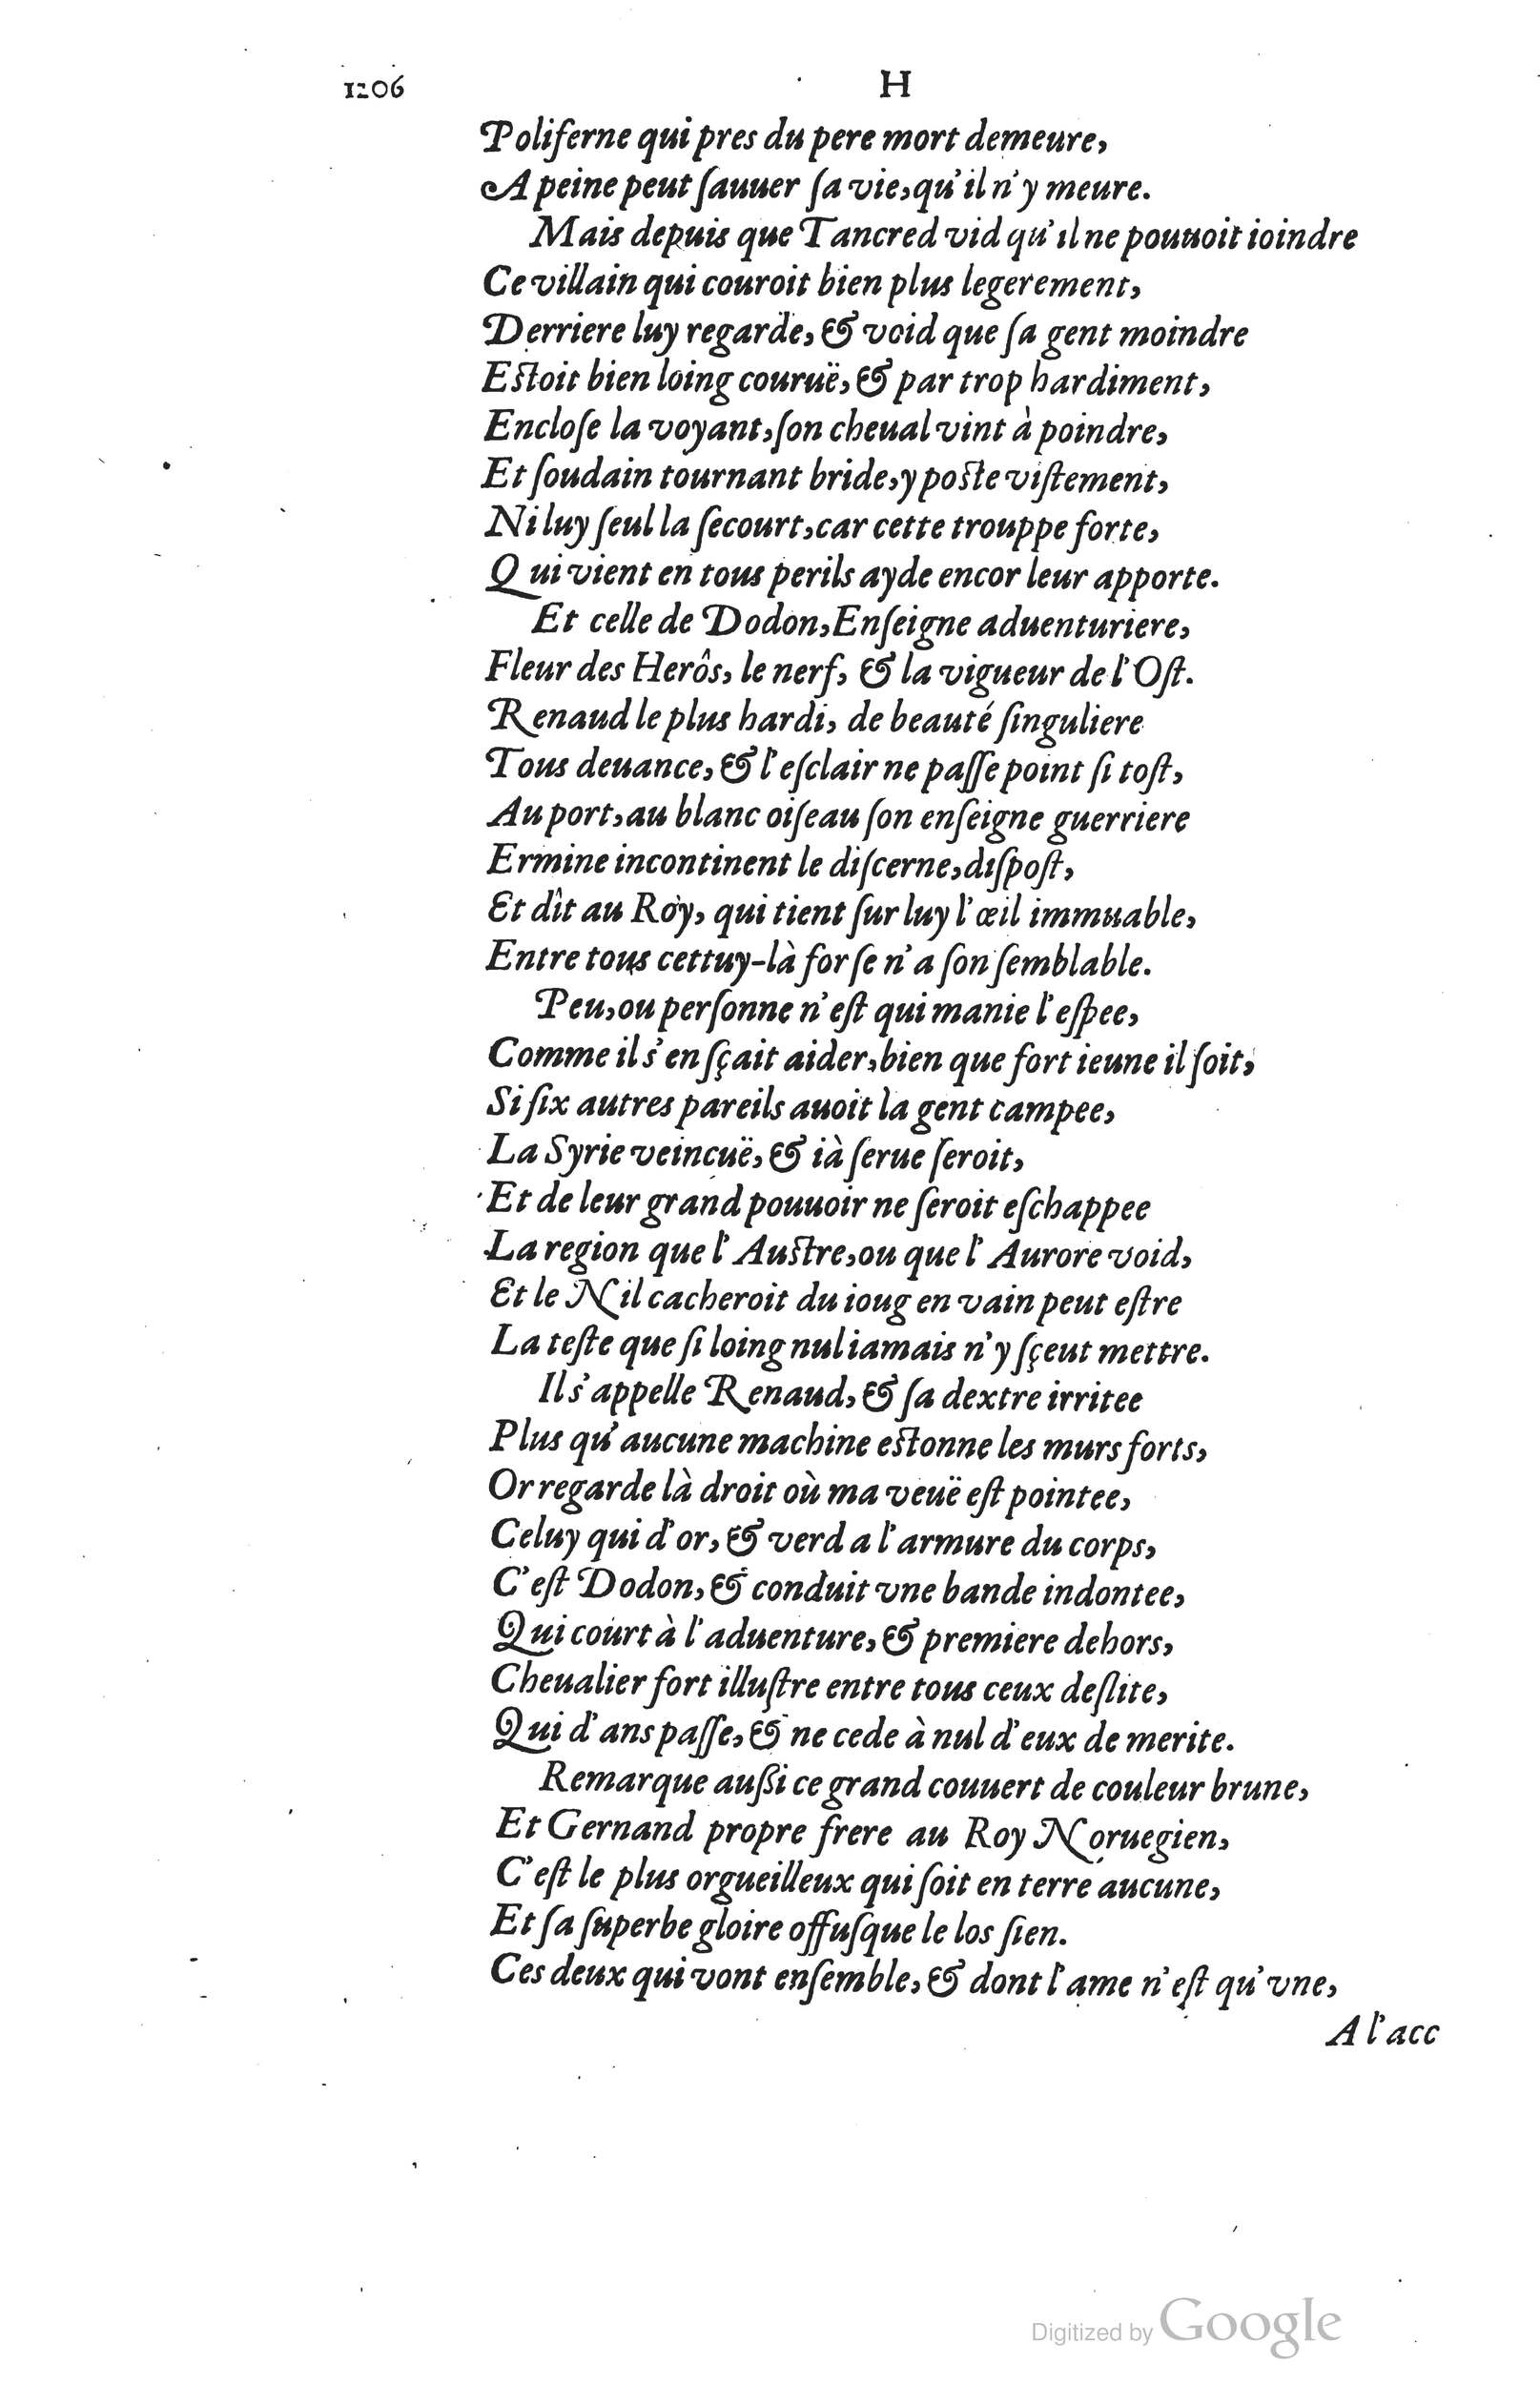 1206 H
Poliferne qui pres du pere mort demeure,
A peine peut ſauuer ſa vie, qu'il n'y meure.
Mais depuis que Tancred vid qu'il ne pouuoit ioindre
Ce villain qui couroit bien plus legerement,
Derriere luy regarde, & void que ſa gent moindre
Eſtoit bien loing couruë, & par trop hardiment,
Encloſe la voyant, ſon cheual vint à poindre,
Et ſoudain tournant bride, y poſte viſtement,
Ni luy ſeul la ſecourt, car cette trouppe forte,
Qui vient en tous perils ayde encor leur apporte.
Et celle de Dodon, Enſeigne aduenturiere,
Fleur des Herôs, le nerf, & la vigueur de l'Oſt.
Renaud le plus hardi, de beauté ſinguliere
Tous deuance, & l'eſclair ne paſſe point ſi toſt,
Au port, au blanc oiſeau ſon enſeigne guerriere
Ermine incontinent le diſcerne, diſpoſt,
Et dît au Roy, qui tient ſur luy l'œil immuable,
Entre tous cettuy-là for ſe n'a ſon ſemblable.
Peu, ou perſonne n'eſt qui manie l'eſpee,
Comme il s'en ſçait aider, bien que fort ieune il ſoit,
Si ſix autres pareils auoit la gent campee,
La Syrie veincuë, & ià ſerue ſeroit,
Et de leur grand pouuoir ne ſeroit eſchappee
La region que l'Auſtre, ou que l'Aurore void,
Et le Nil cacheroit du ioug en vain peut eſtre
La teſte que ſi loing nul iamais n'y ſçeut mettre.
Il s'appelle Renaud, & ſa dextre irritee
Plus qu'aucune machine eſtonne les murs forts,
Or regarde là droit où ma veuë eſt pointee,
Celuy qui d'or, & verd a l'armure du corps,
C'eſt Dodon, & conduit vne bande indontee,
Qui court à l'aduenture, & premiere dehors,
Cheualier fort illuſtre entre tous ceux deſlite,
Qui d'ans paſſe, & ne cede à nul d'eux de merite.
Remarque auſſi ce grand couuert de couleur brune,
Et Gernand propre frere au Roy Noruegien,
C'eſt le plus orgueilleux qui ſoit en terre aucune,
Et ſa ſuperbe gloire offuſque le los ſien.
Ces deux qui vont enſemble, & dont l'ame n'eſt qu'vne,
A l'acc
Digitized by Google